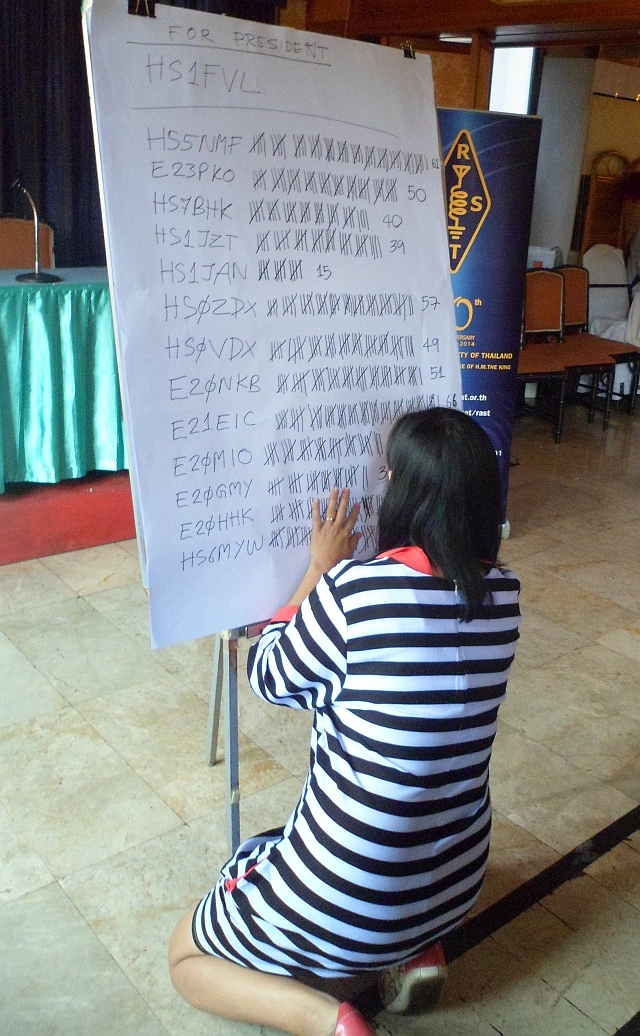 FOR PRESIDENT
HS1FVL
HS5NMF 61
E23PKO 50
HS7BHK 40
HS1JZT 39
HS1JAN 15
HSØZDX 57
HSØVDX 49
E2ØNKB 51
E21EIC 66
E2ØMIO
E2ØGMY 3
E2ØHHK
HS6MYW
R
A
S
T
0th
2014
TY OF THAILAND
E OF H.M.THE KING
st.or.th
et/rast